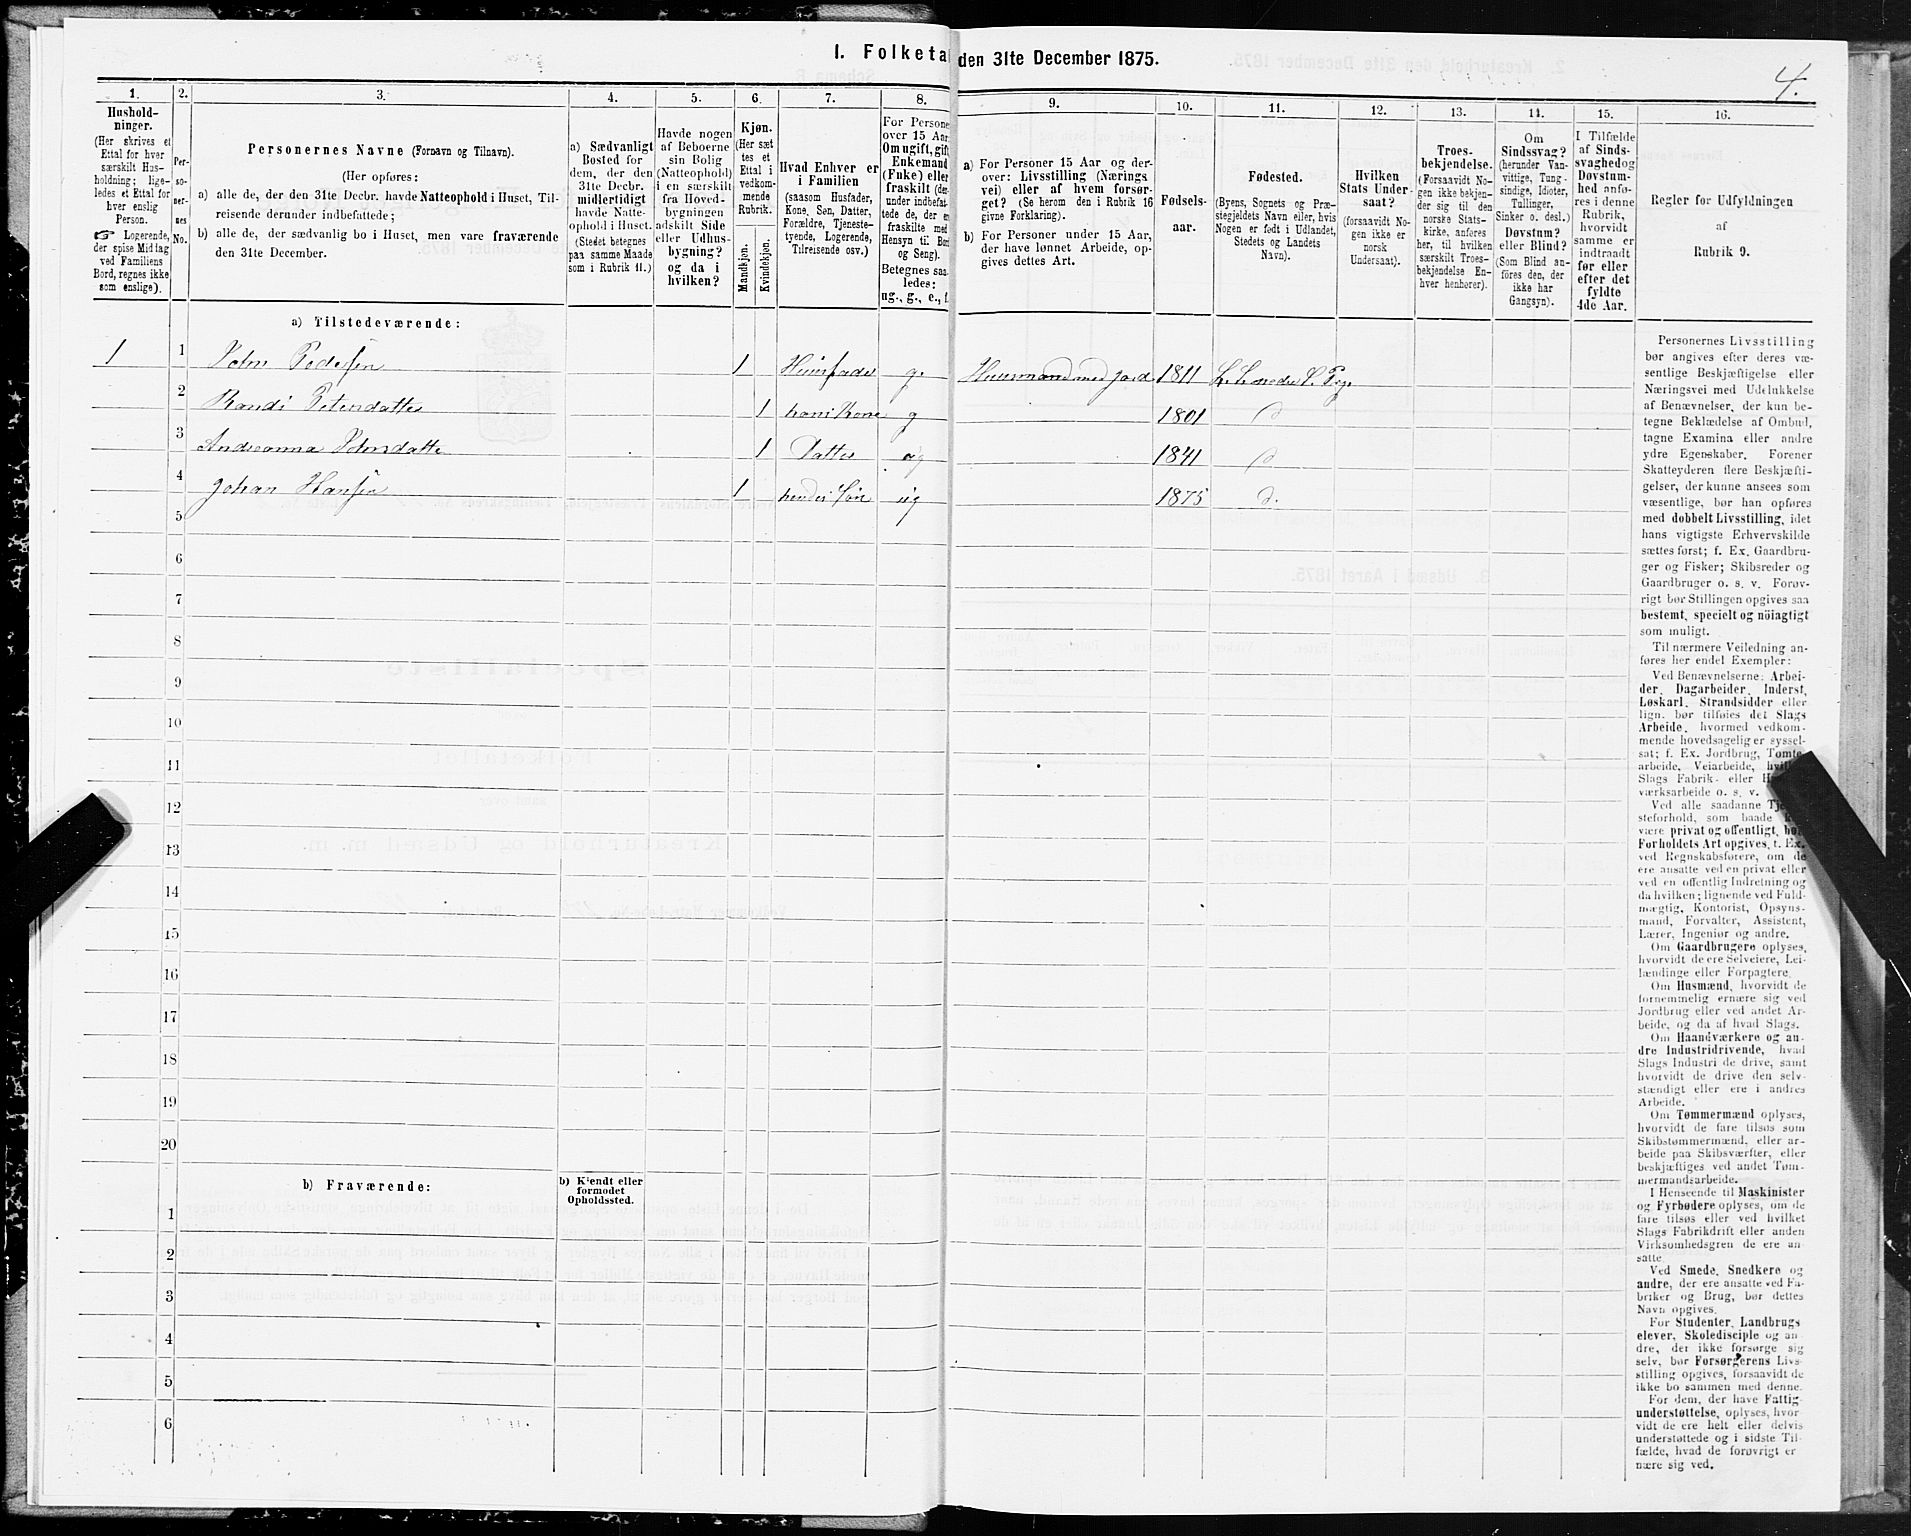 I. Folketal den 31te December 1875.
4.
1.
Hushold-
ninger.
(Her skrives et
Ettal for hver
særskilt Hus-
holdning; lige-
ledes et Ettal for
hver enslig
Person.
☞ Logerende,
der spise Middag
ved Familiens
Bord, regnes ikke
som enslige).
2.
Per-
so-
ner-
nes
No.
3.
Personernes Navne (Fornavn og Tilnavn).
(Her opføres:
a) alle de, der den 31te Decbr. havde Natteophold i Huset, Til-
reisende derunder indbefattede;
b) alle de, der sædvanlig bo i Huset, men vare fraværende
den 31te December.
4.
a) Sædvanligt
Bosted for
dem, der den
31te Decbr.
midlertidigt
havde Natte-
ophold i Huset.
(Stedet betegnes
paa samme Maade
som i Rubrik 11.)
5.
Havde nogen
af Beboerne
sin Bolig
(Natteophold)
i en særskilt
fra Hoved-
bygningen
adskilt Side
eller Udhus-
bygning?
og da i
hvilken?
6.
Kjøn.
(Her sæt
tes et
Ettal i
vedkom-
mende
Rubrik.
Mandkjøn.
Kvindekjøn.
7.
Hvad Enhver er
i Familien
(saasom Husfader,
Kone, Søn, Datter,
Forældre, Tjeneste-
tyende, Logerende,
Tilreisende osv.)
8.
For Persone
over 15 Aar
Om ugift, gift
Enkemand
(Enke) eller
fraskilt (der-
under indbefat-
tede de, der er
fraskilte med
Hensyn til Bor
og Seng).
Betegnes saa-
ledes:
ug., g., e., f.
9.
a) For Personer 15 Aar og der-
over: Livsstilling (Nærings
vei) eller af hvem forsør-
get? (Se herom den i Rubrik 16
givne Forklaring).
b) For Personer under 15 Aar,
der have lønnet Arbeide, op-
gives dettes Art.
10.
Fødsels-
aar.
11.
Fødested.
(Byens, Sognets og Præ-
stegjeldets Navn eller, hvis
Nogen er født i Udlandet,
Stedets og Landets
Navn).
12.
Hvilken
Stats Under-
saat?
(forsaavidt No-
gen ikke er
norsk
Undersaat).
13.
Troes-
bekjendelse.
(Forsaavidt No-
gen ikke bekjen-
der sig til den
norske Stats-
kirke, anføres
her, til hvilken
særskilt Troes-
bekjendelse En-
hver henhører).
14.
Om
Sindssvag?
(herunder Van-
vittige, Tung-
sindige, Idioter,
Tullinger,
Sinker o. desl.)
Døvstum?
eller Blind?
(Som Blind an-
føres den, der
ikke har
Gangsyn).
15.
I Tilfælde
af Sinds-
svaghed og
Døvstum-
hed anfø-
res i denne
Rubrik,
hvorvidt
samme er
indtraadt
før eller
efter det
fyldte
4de Aar.
16.
Regler for Udfyldningen
af
Rubrik 9.
a) Tilstedeværende:
1 1 John Pedersen 1 Huusfader g. Huusmand med jord 1811
2 Randi Petersdatter 1 hans Kone g 1801 d
3 Andreanna Johnsdatter 1 Datter ug 1841 d
4 Johan Hansen 1 hendes Søn ug 1875 d.
5
6
7
8
9
10
11
12
13
14
15
16
17
18
19
20
b) Fraværende:
b) Kjendt eller
formodet
Opholdssted.
1
2
3
4
5
6
Personernes Livsstilling
bør angives efter deres væ-
sentlige Beskjæftigelse eller
Næringsvei med Udelukkelse
af Benævnelser, der kun be-
tegne Beklædelse af Ombud,
tagne Examina eller andre
ydre Egenskaber. Forener
Skatteyderen flere Beskjæfti-
gelser, der kunne ansees som
væsentlige, bør han opføres
med dobbelt Livsstilling, idet
hans vigtigste Erhvervskilde
sættes først; f. Ex. Gaardbru-
ger og Fisker; Skibsreder og
Gaardbruger o. s. v. Forøv-
rigt bør Stillingen opgives saa
bestemt, specielt og nöiagtigt
som muligt.
Til nærmere Veiledning an-
føres her endel Exempler:
Ved Benævnelserne: Arbei-
der, Dagarbeider, Inderst,
Løskarl, Strandsidder eller
lign. bør tilføies det Slags
Arbeide, hvormed vedkom-
mende hovedsagelig er syssel-
sat; f. Ex. Jordbrug, Tomte-
arbeide, Veiarbeide, hvilket
Slags Fabrik- eller
værksarbeide o. s. v.
Ved alle saadanne
steforhold, som baade
være privat og offentligt, bør
Forholdets Art opgives, f. Ex.
ved Regnskabsførere, om de
ere ansatte ved en privat eller
ved en offentlig Indretning og
da hvilken; lignende ved Fuld-
mægtig, Kontorist, Opsyns-
mand, Forvalter, Assistent,
Lærer, Ingeniør og andre.
Om Gaardbrugere oplyses,
hvorvidt de ere Selveiere, Lei-
lændinge eller Forpagtere.
Om Husmænd, hvorvidt de
fornemmelig ernære sig ved
Jordbrug eller ved andet Ar-
beide, og da af hvad Slags.
Om Haandværkere og an-
dre Industridrivende, hvad
Slags Industri de drive, samt
hvorvidt de drive den selv-
stændigt eller ere i andres
Arbeide.
Om Tømmermænd oplyses,
hvorvidt de fare tilsøs som
Skibstømmermænd, eller ar-
beide paa Skibsværfter, eller
beskjæftiges ved andet Tøm-
mermandsarbeide.
I Henseende til Maskinister
og Fyrbødere oplyses, om de
fare tilsøs eller ved hvilket
Slags Fabrikdrift eller anden
Virksomhedsgren de ere an-
satte.
Ved Smede, Snedkere og
andre, der ere ansatte ved Fa-
briker og Brug, bør dettes
Navn opgives.
For Studenter, Landbrugs
elever, Skoledisciple og an-
dre, der ikke forsørge sig
selv, bør Forsørgerens Livs-
stilling opgives, forsaavidt de
ikke bo sammen med denne.
For dem, der have Fattig-
understøttelse, oplyses, hvor
vidt de ere helt eller delvis
understøttede og i sidste Til-
fælde, hvad de forøvrigt er
nære sig ved.